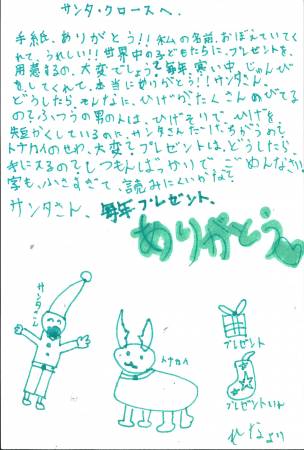 サンタ・クロースへ.
手紙、ありがとう!! 私の名前、おぼえていてく
れて、うれしい!! 世界中の子どもたちに、プレゼントを、
用意するの、大変でしょう? 毎年、寒い中、じゅんび
をしてくれて、本当にありがとう!! サンタさん、
どうしたら、そんなに、ひげが、たくさんのびてる
の? ふつうの男の人は、ひげそりで、ひげを、
短かくしているのに、サンタさんだけ、ちがうわね。
トナカイのせわ、大変? プレゼントは、どうしたら、
手に入るの? しつもんばっかりで、ごめんなさい。
字も、ふとすぎて、読みにくいかな?
サンタさん、毎年プレゼント、
ありがとう
サンタさん
トナカイ
プレゼント
プレゼント入れ
れなより